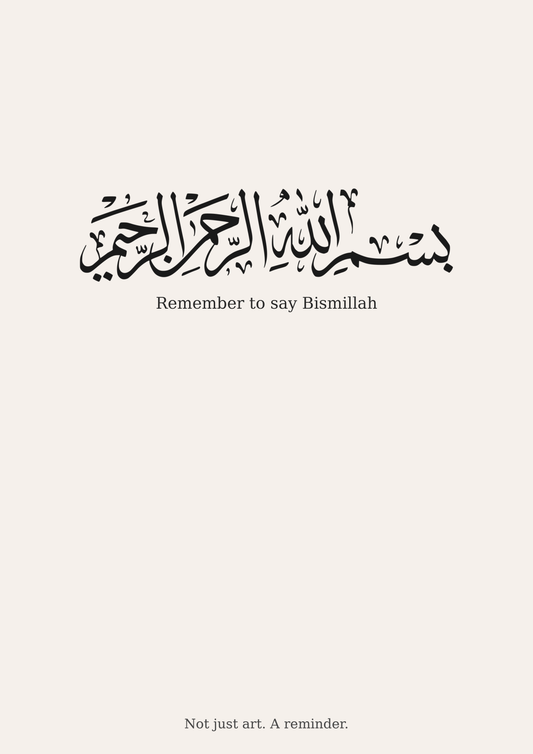 بسم الله الرحمن الرحيم
Remember to say Bismillah
Not just art. A reminder.